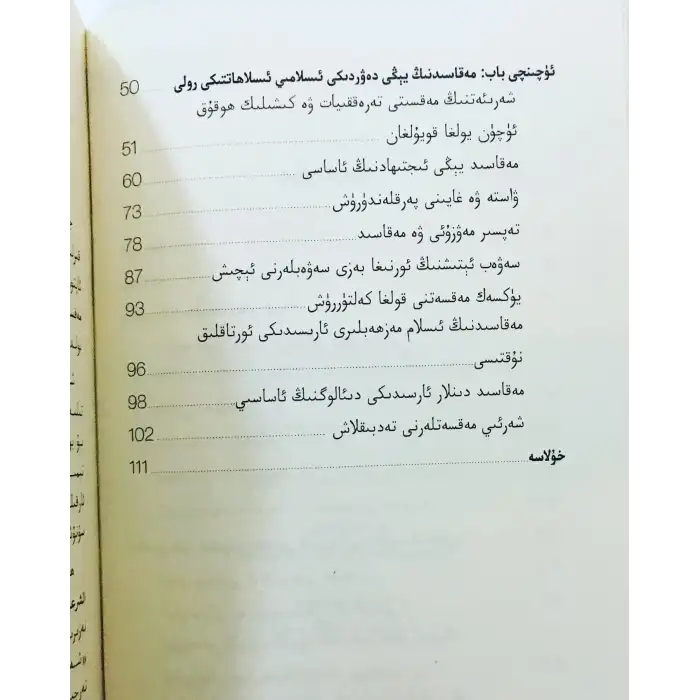 ئۈچىنچى باب: مەقاسىدنىڭ يېڭى دەۋردىكى ئىسلامىي ئىسلاھاتتىكى رولى 50
شەرىئەتنىڭ مەقسىتى تەرەققىيات ۋە كىشىلىك ھوقۇق
ئۈچۈن يولغا قويۇلغان 51
مەقاسىد يېڭى ئىجتىھادنىڭ ئاساسى 60
ۋاستە ۋە غايىنى پەرقلەندۈرۈش 73
تەپسىر مەۋزۇئى ۋە مەقاسىد 78
سەۋەب ئېتىشنىڭ ئورنىغا بەزى سەۋەبلەرنى ئېچىش 87
يۈكسەك مەقسەتنى قولغا كەلتۈررۈش 93
مەقاسىدنىڭ ئىسلام مەزھەبلىرى ئارىسىدىكى ئورتاقلىق
نۇقتىسى 96
مەقاسىد دىنلار ئارسىدىكى دىئالوگنىڭ ئاساسىي 98
شەرئىي مەقسەتلەرنى تەدبىقلاش 102
خۇلاسە 111